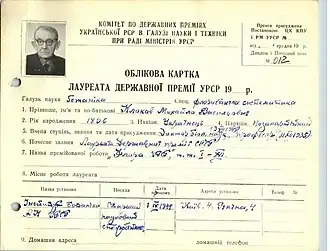 КОМІТЕТ ПО ДЕРЖАВНИХ ПРЕМІЯХ
УКРАЇНСЬКОЇ РСР В ГАЛУЗІ НАУКИ І ТЕХНІКИ
ПРИ РАДІ МІНІСТРІВ УРСР
Премія присуджена
Постановою ЦК КПУ
і РМ УРСР №
№ 012
ОБЛІКОВА КАРТКА
ЛАУРЕАТА ДЕРЖАВНОЇ ПРЕМІЇ УРСР 19 р.
Галузь науки Ботаніка Спец. систематика
1. Прізвище, ім'я та по-батькові Клоков Михайло Васильович
2. Рік народження 1896 3. Національність Українець 4. Партійність
5. Вчена ступінь, звання та дата присудження Доктор біол. наук, професор
6. Почесне звання Лауреат Державної премії СРСР
7. Назва премійованої роботи "Флора УРСР", т.т. I-XII
8. Місце роботи лауреата
Назва установи Посада Адреса установи Телеф. №
Інститут ботаніки АН УРСР Старший науковий співробітник Київ,
9. Домашня адреса домашній телефон